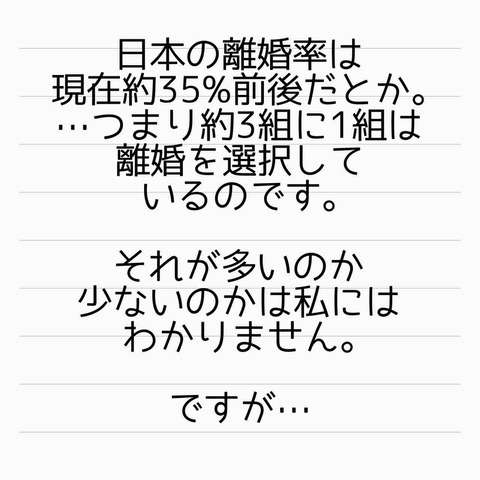 日本の離婚率は
現在約35%前後だとか。
…つまり約3組に1組は
離婚を選択して
いるのです。
それが多いのか
少ないのかは私には
わかりません。
ですが…